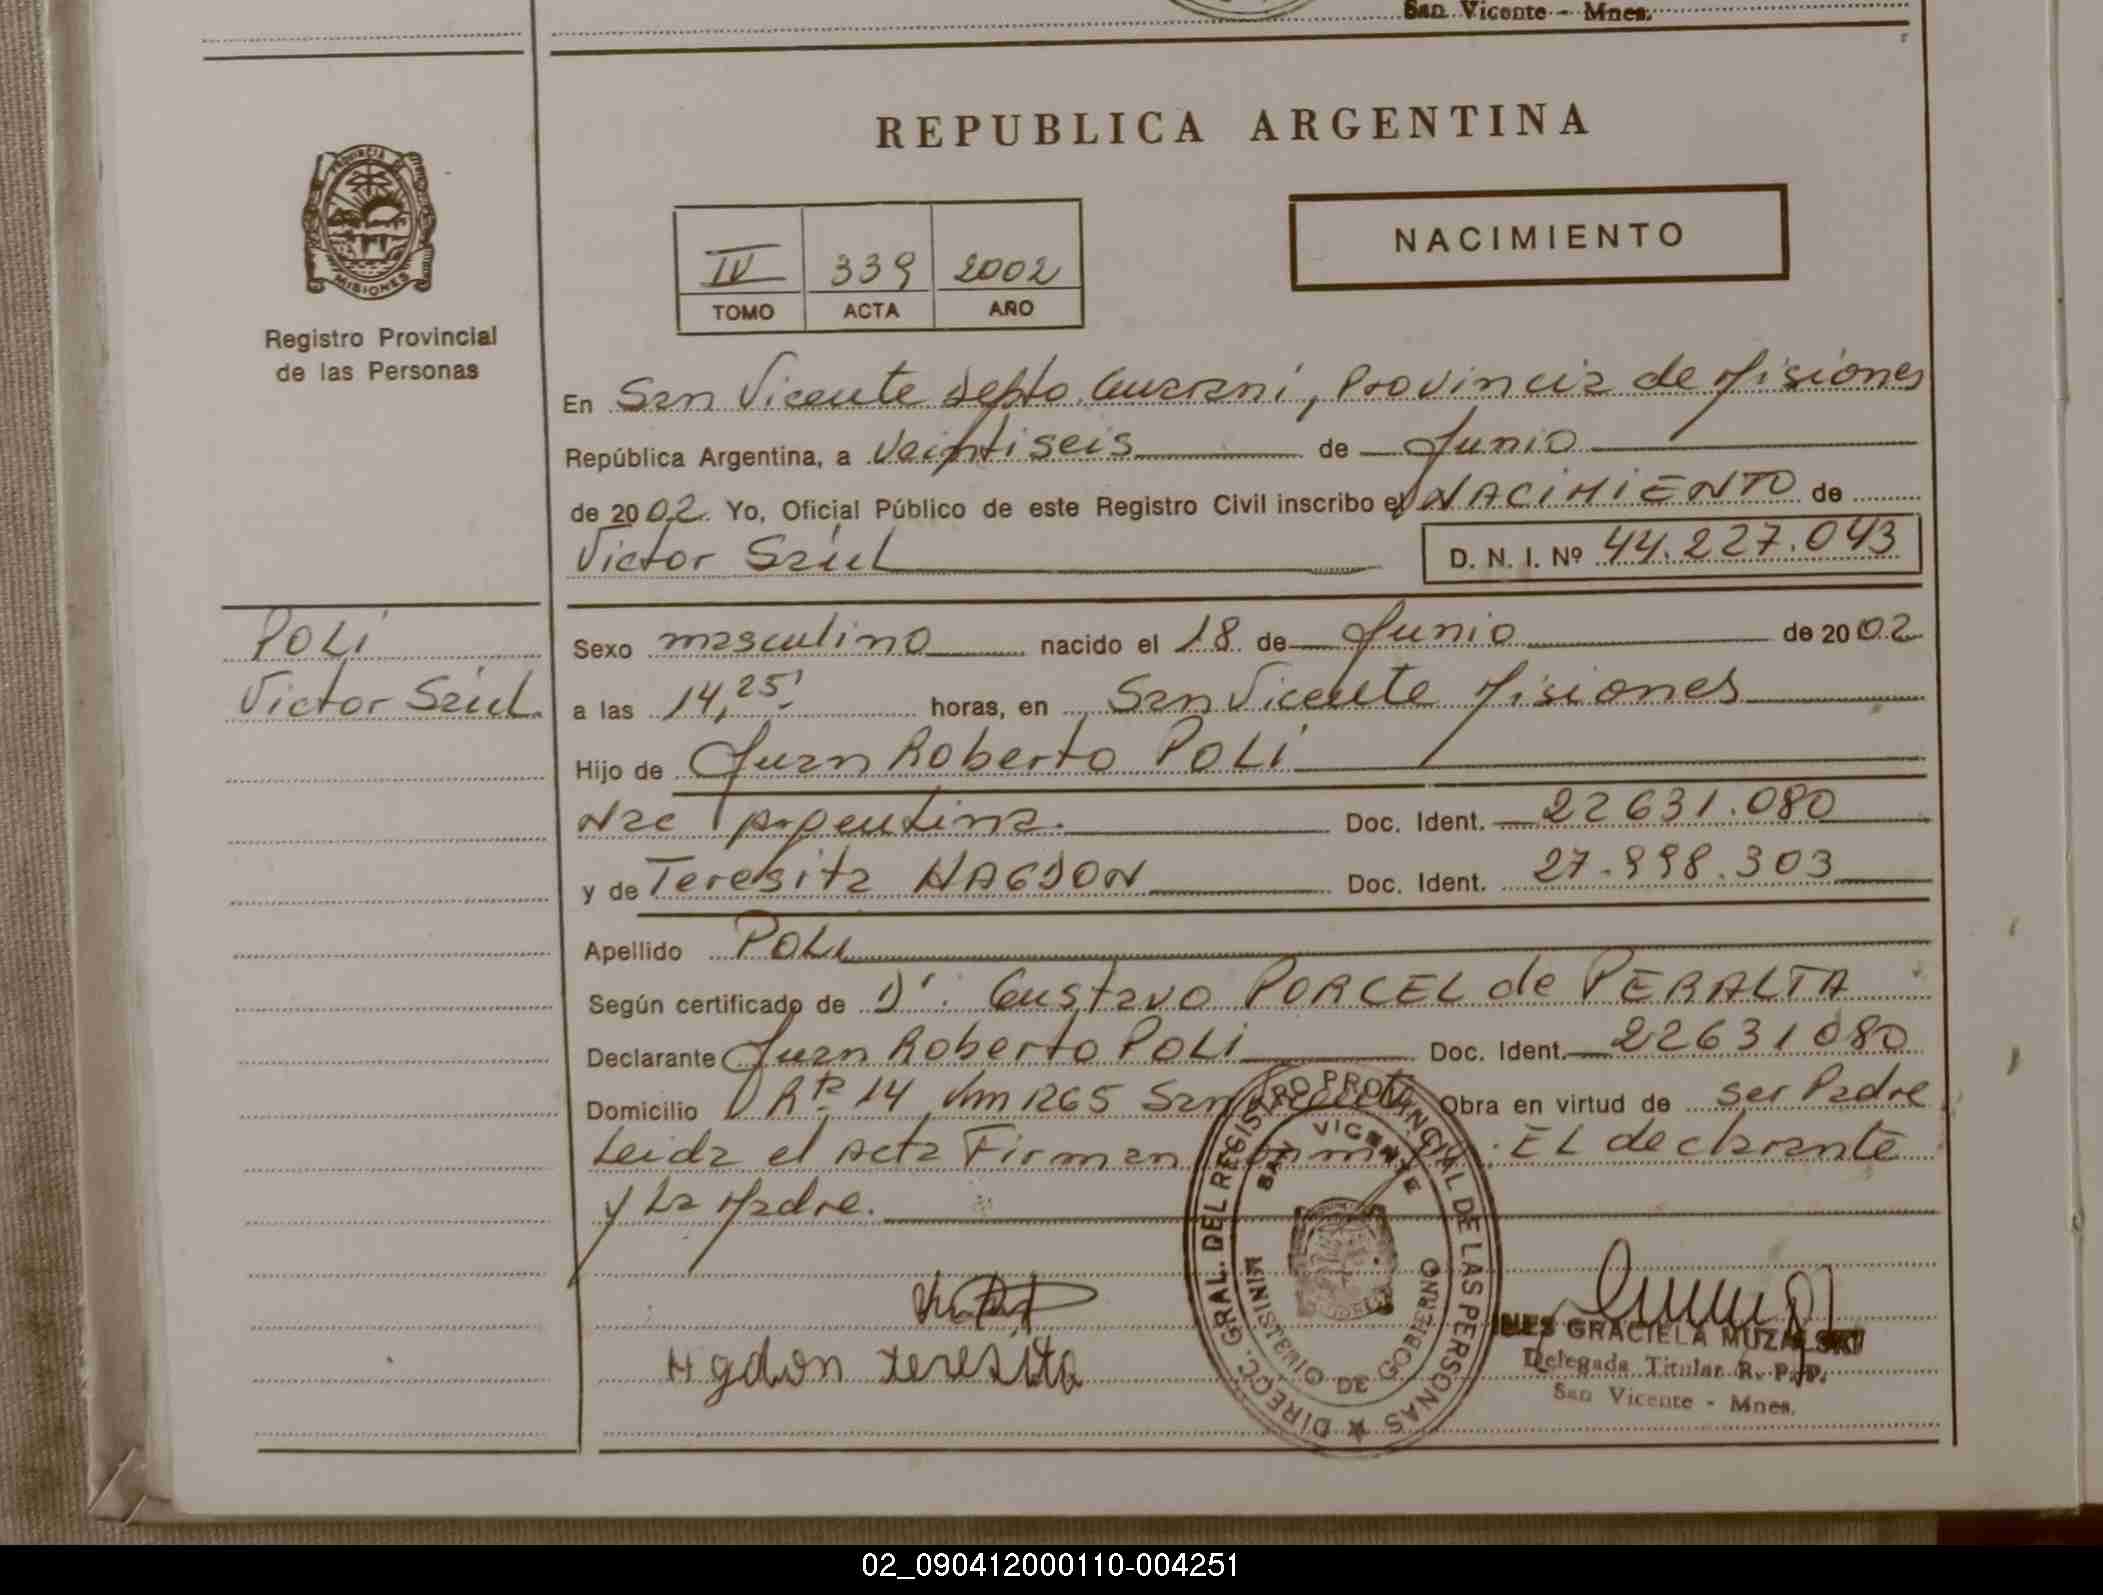 San Vicente - Mnes.
REPUBLICA ARGENTINA
PROVINCIA DE
MISIONES
Registro Provincial
de las Personas
IV 339 2002
TOMO ACTA AÑO
NACIMIENTO
En San Vicente Depto. Guarani, Provincia de Misiones
República Argentina, a Veintiseis de Junio
de 2002. Yo, Oficial Público de este Registro Civil inscribo el NACIMIENTO de
Victor Saúl D. N. I. Nº 44.227.043
POLI
Victor Saúl
Sexo masculino nacido el 18 de Junio de 2002
a las 14,25' horas, en San Vicente Misiones
Hijo de Juan Roberto POLI
Nac Argentina. Doc. Ident. 22631.080
y de Teresita HAGDON Doc. Ident. 27.998.303
Apellido POLI
Según certificado de Dr. Gustavo PORCEL de PERALTA
Declarante Juan Roberto POLI Doc. Ident. 22631080
Domicilio Rta 14 Km 1265 San Obra en virtud de ser Padre
Leida el Acta Firman EL declarante
y La Madre.
DIRECC. GRAL. DEL REGISTRO PROVINCIAL DE LAS PERSONAS
SAN VICENTE
MINISTERIO DE GOBIERNO
Hgdon teresita
INES GRACIELA MUZALSKI
Delegada Titular R. P. P.
San Vicente - Mnes.
02_090412000110-004251